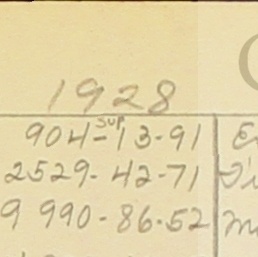 1928
904-SUP13-91
2529-42-71
9 990-86-52